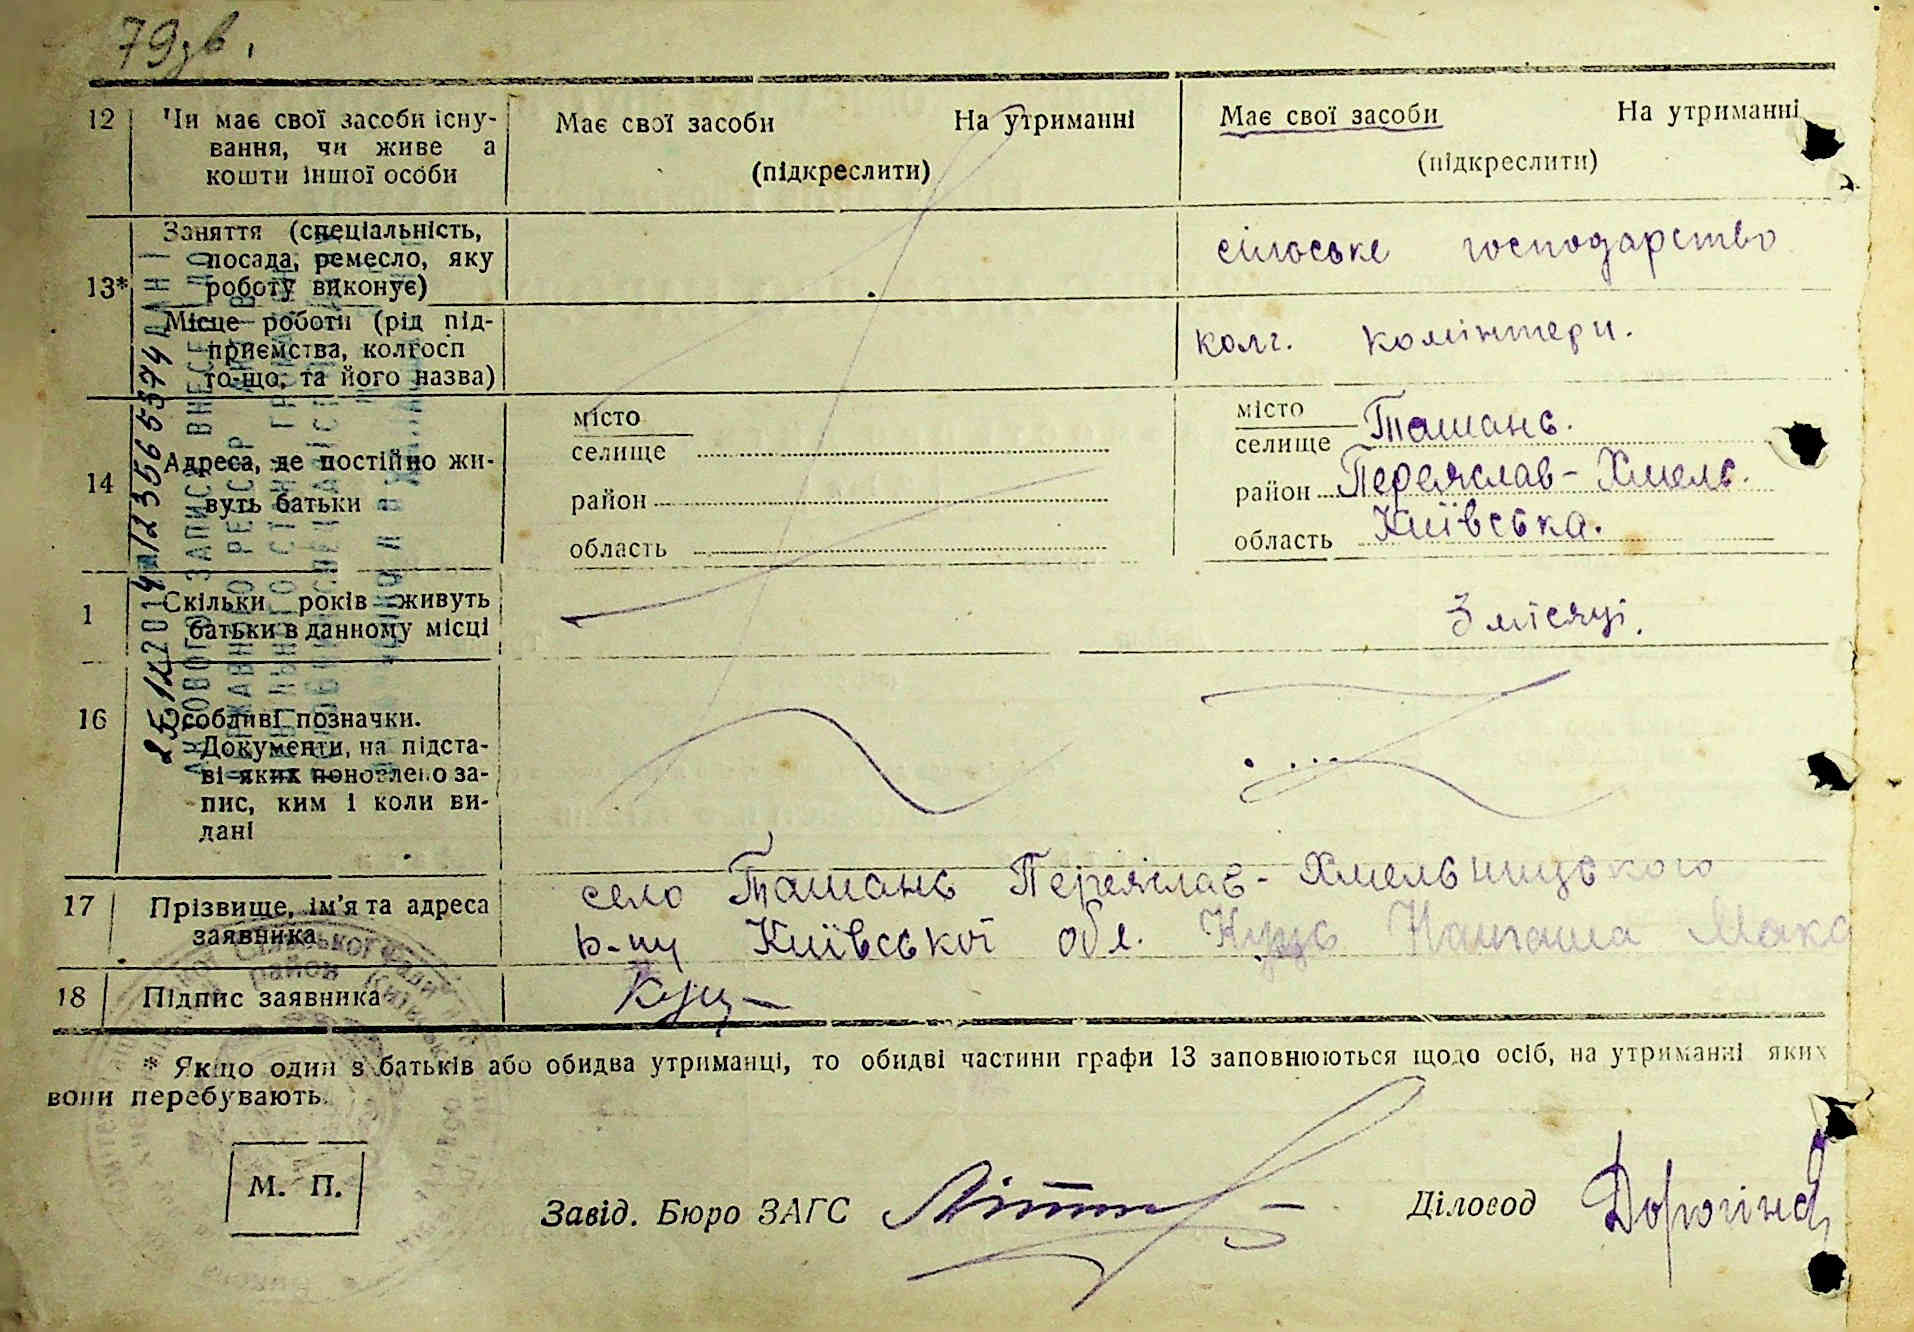 79зв.
12 Чи має свої засоби існу-
вання, чи живе а
кошти іншої особи
Має свої засоби На утриманні
(підкреслити)
Має свої засоби На утриманні
(підкреслити)
13* Заняття (спеціальність,
посада, ремесло, яку
роботу виконує)
сільське господарство
Місце роботи (рід під-
приємства, колгосп
то-що, та його назва)
колг. комінтерн.
14 Адреса, де постійно жи-
вуть батьки
місто
селище
район
область
місто
селище Ташань.
район Переяслав-Хмель.
область Київська.
1 Скільки років живуть
батьки в данному місці
3 місяці.
16 Особливі позначки.
Документи, на підста-
ві яких поновлено за-
пис, ким і коли ви-
дані
17 Прізвище, ім'я та адреса
заявника
село Ташань Переяслав-Хмельницького
р-ну Київської обл. Куць Наталія Макс
18 Підпис заявника
Куц
* Якщо один з батьків або обидва утриманці, то обидві частини графи 13 заповнюються щодо осіб, на утриманні яких
вони перебувають.
М. П.
Завід. Бюро ЗАГС
Діловод